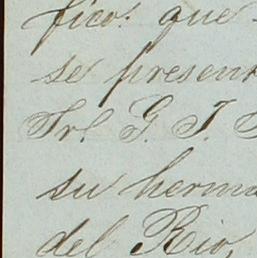 fico. que
se present
Srl. G. T.
su herma
del Rio,